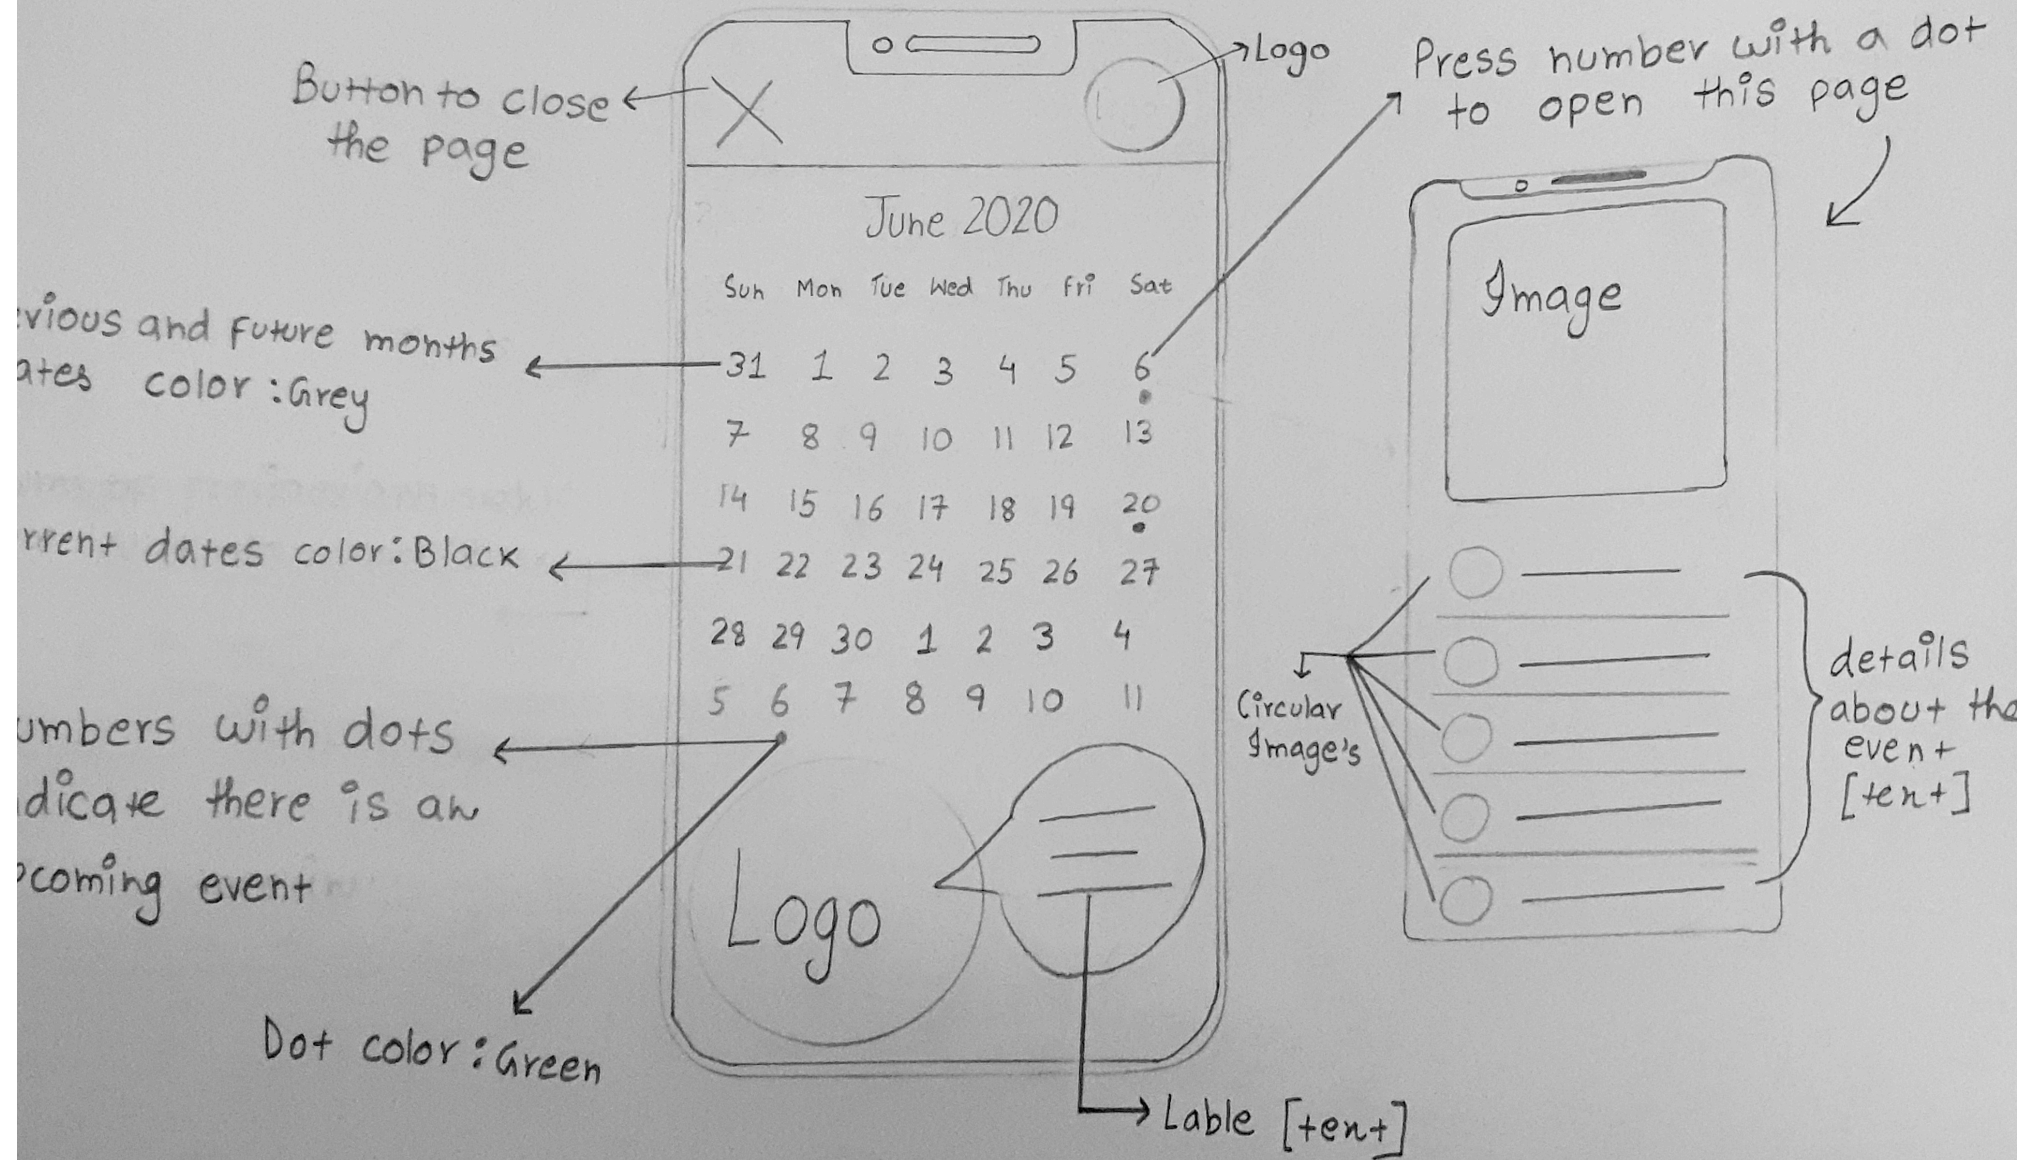 Button to close
the page
Logo
Press number with a dot
to open this page
June 2020
Sun Mon Tue Wed Thu Fri Sat
31 1 2 3 4 5 6
7 8 9 10 11 12 13
14 15 16 17 18 19 20
21 22 23 24 25 26 27
28 29 30 1 2 3 4
5 6 7 8 9 10 11
vious and Future months
ates color :Grey
rrent dates color:Black
umbers with dots
dicate there is an
coming event
Dot color:Green
Logo
Lable [text]
Image
Circular
Image's
details
about the
event
[text]